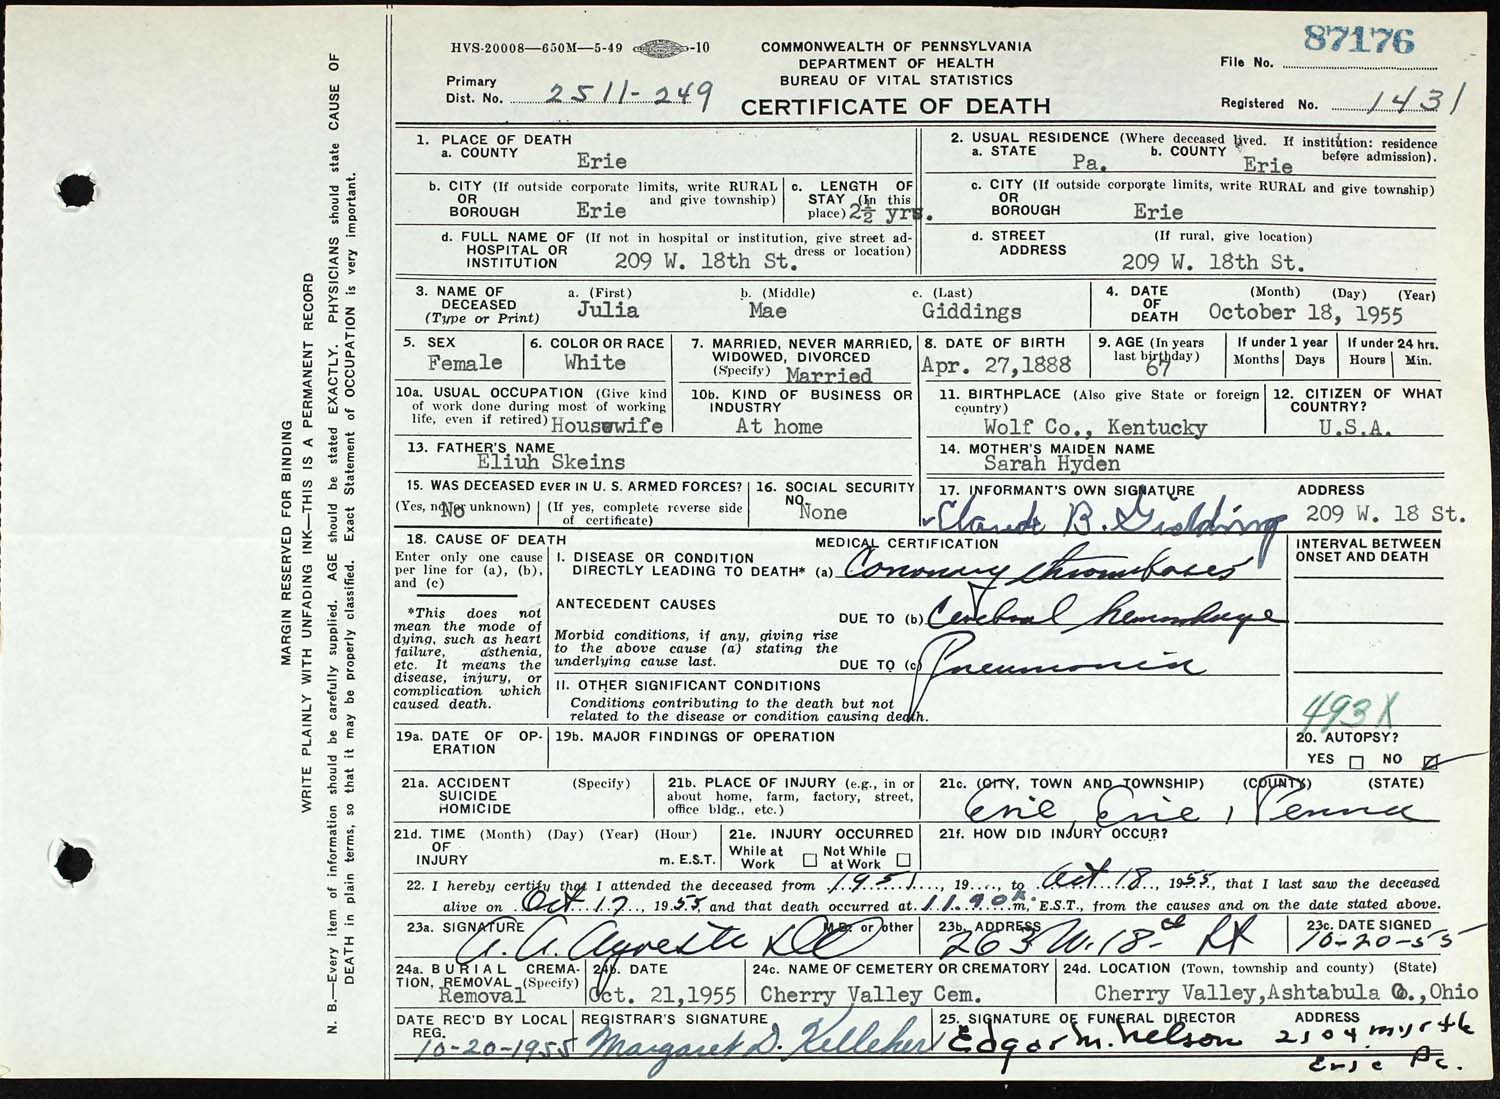 87176
HVS-20008—650M—5-49 -10
COMMONWEALTH OF PENNSYLVANIA
DEPARTMENT OF HEALTH
BUREAU OF VITAL STATISTICS
CERTIFICATE OF DEATH
File No.
Primary
Dist. No. 2511-249
Registered No. 1431
MARGIN RESERVED FOR BINDING
WRITE PLAINLY WITH UNFADING INK—THIS IS A PERMANENT RECORD
N. B.—Every item of information should be carefully supplied. AGE should be stated EXACTLY. PHYSICIANS should state CAUSE OF
DEATH in plain terms, so that it may be properly classified. Exact Statement of OCCUPATION is very important.
1. PLACE OF DEATH
a. COUNTY Erie
2. USUAL RESIDENCE (Where deceased lived. If institution: residence
before admission).
a. STATE Pa. b. COUNTY Erie
b. CITY (If outside corporate limits, write RURAL
OR and give township)
BOROUGH Erie
c. LENGTH OF
STAY (in this
place) 2½ yrs.
c. CITY (If outside corporate limits, write RURAL and give township)
OR
BOROUGH Erie
d. FULL NAME OF (If not in hospital or institution, give street ad-
HOSPITAL OR dress or location)
INSTITUTION 209 W. 18th St.
d. STREET (If rural, give location)
ADDRESS 209 W. 18th St.
3. NAME OF a. (First) b. (Middle) c. (Last)
DECEASED Julia Mae Giddings
(Type or Print)
4. DATE (Month) (Day) (Year)
OF
DEATH October 18, 1955
5. SEX
Female
6. COLOR OR RACE
White
7. MARRIED, NEVER MARRIED,
WIDOWED, DIVORCED
(Specify) Married
8. DATE OF BIRTH
Apr. 27,1888
9. AGE (In years
last birthday)
67
If under 1 year
Months Days
If under 24 hrs.
Hours Min.
10a. USUAL OCCUPATION (Give kind
of work done during most of working
life, even if retired) Housewife
10b. KIND OF BUSINESS OR
INDUSTRY
At home
11. BIRTHPLACE (Also give State or foreign
country)
Wolf Co., Kentucky
12. CITIZEN OF WHAT
COUNTRY?
U.S.A.
13. FATHER'S NAME
Eliuh Skeins
14. MOTHER'S MAIDEN NAME
Sarah Hyden
15. WAS DECEASED EVER IN U. S. ARMED FORCES?
(Yes, no, or unknown) (If yes, complete reverse side
of certificate)
No
16. SOCIAL SECURITY
NO.
None
17. INFORMANT'S OWN SIGNATURE ADDRESS
Claude B. Giddings 209 W. 18 St.
18. CAUSE OF DEATH
Enter only one cause
per line for (a), (b),
and (c)
*This does not
mean the mode of
dying, such as heart
failure, asthenia,
etc. It means the
disease, injury, or
complication which
caused death.
MEDICAL CERTIFICATION
I. DISEASE OR CONDITION
DIRECTLY LEADING TO DEATH* (a) Coronary thrombosis
ANTECEDENT CAUSES
DUE TO (b) Cerebral hemorrhage
Morbid conditions, if any, giving rise
to the above cause (a) stating the
underlying cause last.
DUE TO (c) Pneumonia
II. OTHER SIGNIFICANT CONDITIONS
Conditions contributing to the death but not
related to the disease or condition causing death.
INTERVAL BETWEEN
ONSET AND DEATH
493X
19a. DATE OF OP-
ERATION
19b. MAJOR FINDINGS OF OPERATION
20. AUTOPSY?
YES NO
21a. ACCIDENT (Specify)
SUICIDE
HOMICIDE
21b. PLACE OF INJURY (e.g., in or
about home, farm, factory, street,
office bldg., etc.)
21c. (CITY, TOWN AND TOWNSHIP) (COUNTY) (STATE)
Erie, Erie, Penna
21d. TIME (Month) (Day) (Year) (Hour)
OF
INJURY m. E.S.T.
21e. INJURY OCCURRED
While at Not While
Work at Work
21f. HOW DID INJURY OCCUR?
22. I hereby certify that I attended the deceased from 1951, 19...., to Oct 18, 1955, that I last saw the deceased
alive on Oct 17, 1955, and that death occurred at m, E.S.T., from the causes and on the date stated above.
23a. SIGNATURE M.D. or other
A. A. Agresti
23b. ADDRESS
263 W. 18
23c. DATE SIGNED
10-20-55
24a. BURIAL CREMA-
TION, REMOVAL (Specify)
Removal
24b. DATE
Oct. 21,1955
24c. NAME OF CEMETERY OR CREMATORY
Cherry Valley Cem.
24d. LOCATION (Town, township and county) (State)
Cherry Valley,Ashtabula Co.,Ohio
DATE REC'D BY LOCAL
REG.
10-20-1955
REGISTRAR'S SIGNATURE
Margaret D. Kelleher
25. SIGNATURE OF FUNERAL DIRECTOR ADDRESS
Edgar M. Nelson 2104 Myrtle
Erie Pa.